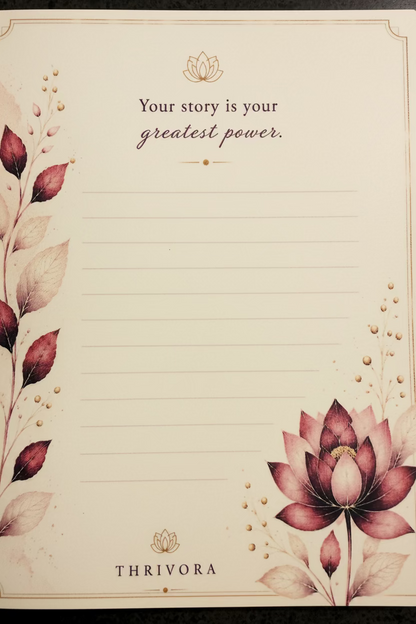 Your story is your
greatest power.
THRIVORA